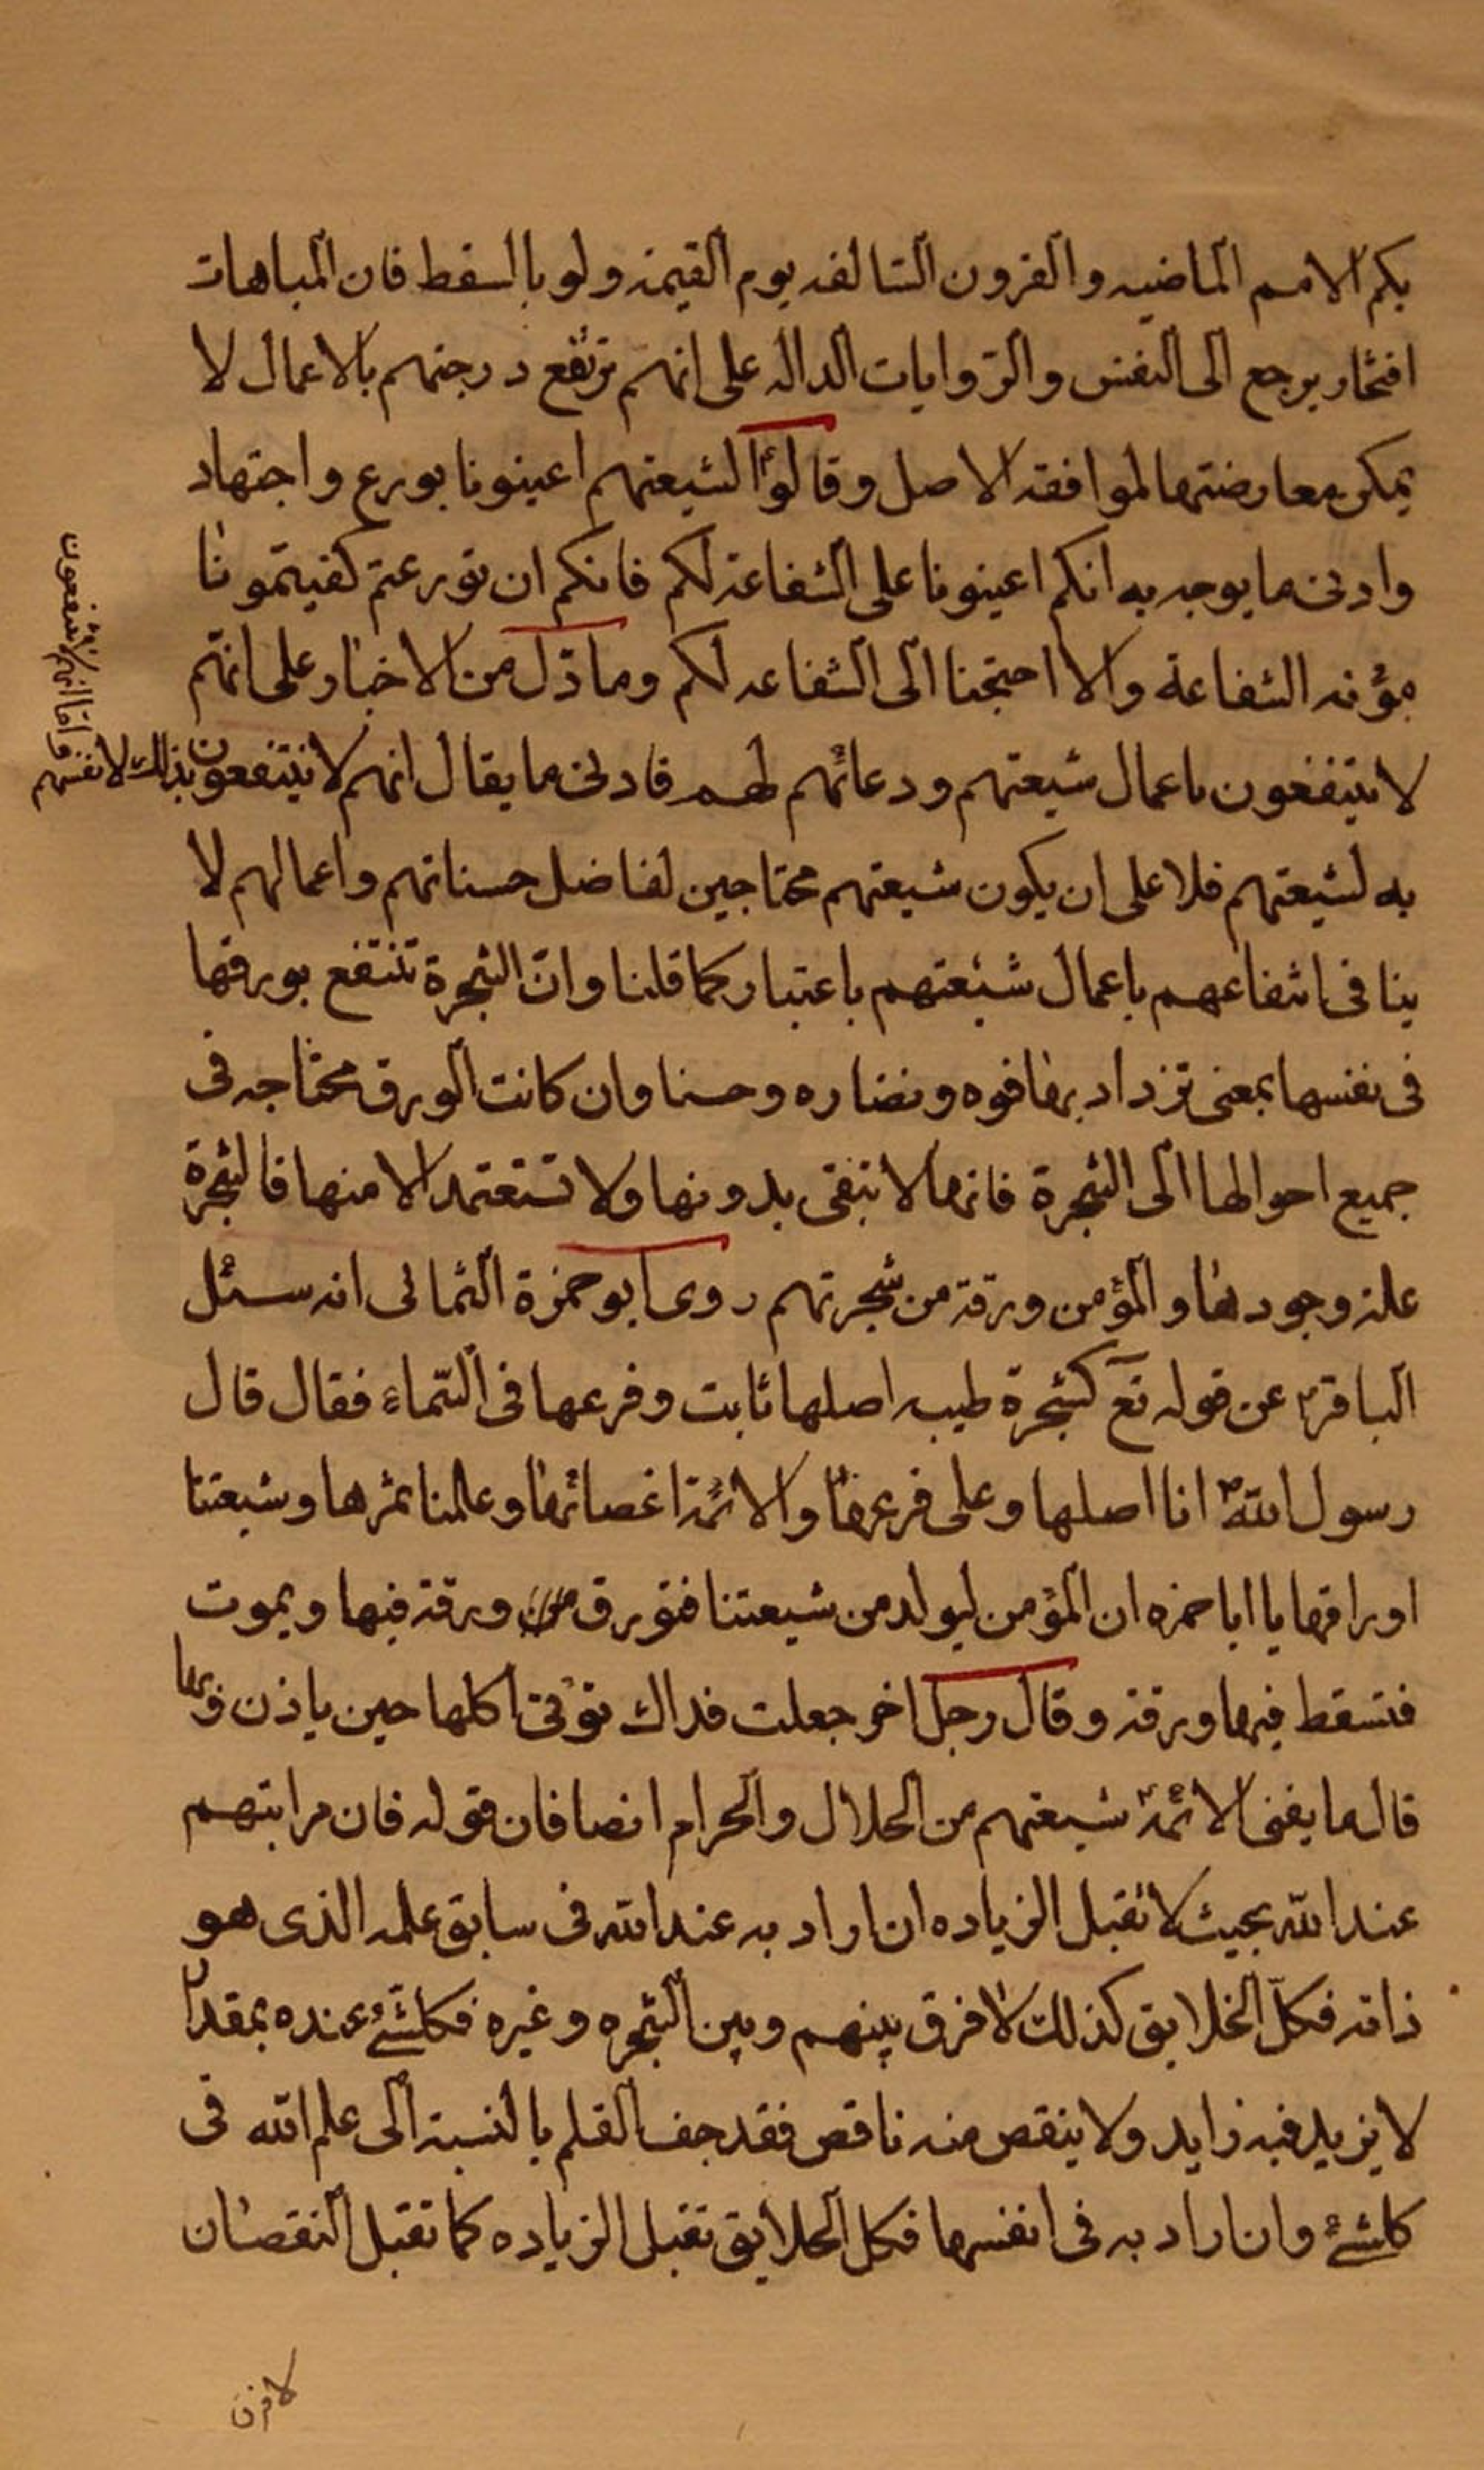 بكم الامم الماضيه والقرون السالفه يوم القيمة ولو بالسقط فان المباهات
افتخار يرجع الى النفس والروايات الداله على انهم ترتفع درجتهم بالاعمال لا
يمكن معارضتها لموافقه الاصل وقالوا لشيعتهم اعينونا بورع واجتهاد
وادنى ما يوجه به انكم اعينونا على الشفاعة لكم فانكم ان تورعتم كفيتمونا
مؤنه الشفاعة والا احتجنا الى الشفاعه لكم وما دل من الاخبار على انهم
لا ينتفعون باعمال شيعتهم ودعائهم لهم فادنى ما يقال انهم لا ينتفعون بذلك لانفسهم
واما انهم لا ينتفعون
به لشيعتهم فلا على ان يكون شيعتهم محتاجين لفاضل حسناتهم واعمالهم لا
ينافى انتفاعهم باعمال شيعتهم باعتبار كما قلنا وان الشجرة تنتفع بورقها
فى نفسها بمعنى تزداد بها قوه ونضاره وحسنا وان كانت الورق محتاجه فى
جميع احوالها الى الشجرة فانها لا تبقى بدونها ولا تستمد الا منها فالشجرة
علة وجودها والمؤمن ورقة من شجرتهم روى ابو حمزة الثمالى انه سئل
الباقر؏ عن قوله تع كشجرة طيبه اصلها ثابت وفرعها فى السماء فقال قال
رسول الله ص انا اصلها وعلى فرعها والائمة اغصانها وعلمنا ثمرها وشيعتنا
اوراقها يا ابا حمزه ان المؤمن ليولد من شيعتنا فتورق ورقة فيها ويموت
فتسقط فيها ورقة وقال رجل اخر جعلت فداك تؤتى اكلها حين باذن ربها
قال ما يفتى الائمة شيعتهم من الحلال والحرام انصافا فان قوله فان مراتبهم
عند الله بحيث لا تقبل الزياده ان اراد به عند الله فى سابق علمه الذى هو
ذاته فكل الخلايق كذلك لا فرق بينهم وبين الشجره وغيره فكلشئ عنده بمقدار
لا يزيد فيه زايد ولا ينقص منه ناقص فقد جف القلم بالنسبة الى علم الله فى
كلشئ وان اراد به فى انفسها فكل الخلايق تقبل الزياده كما تقبل النقصان
لا فرق